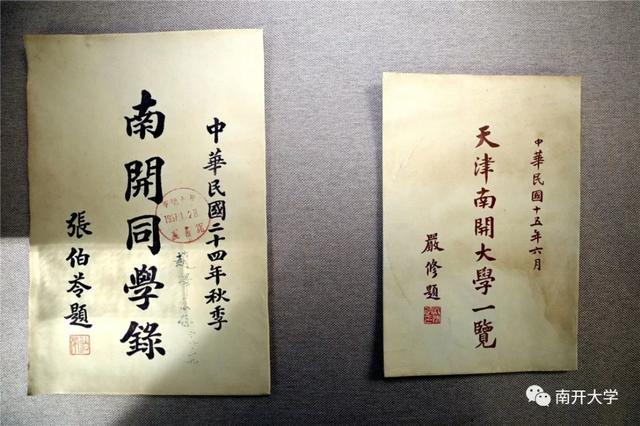 中華民國二十四年秋季
南開同學錄
張伯苓題
1957.1.28
中華民國十五年六月
天津南開大學一覽
嚴修題
南开大学